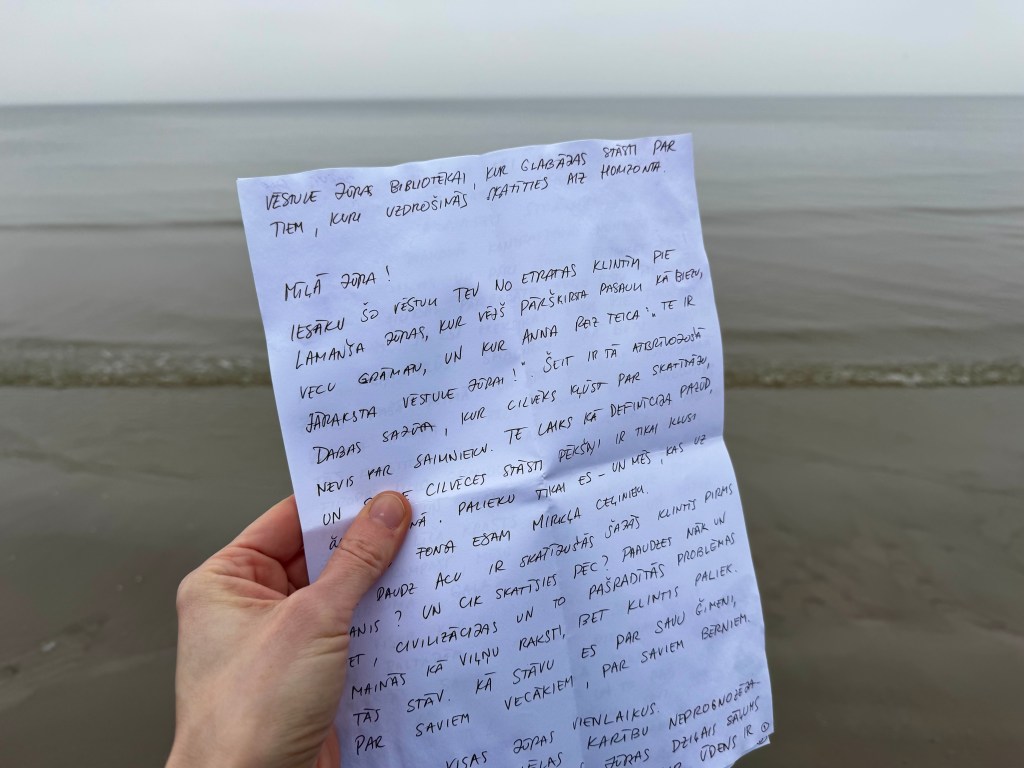 VĒSTULE JŪRAS BIBLIOTĒKAI, KUR GLABĀJAS STĀSTI PAR
TIEM, KURI UZDROŠINĀS SKATĪTIES AIZ HORIZONTA.
MĪĻĀ JŪRA!
IESĀKU ŠO VĒSTULI TEV NO ETRATAS KLINTĪM PIE
LAMANŠA JŪRAS, KUR VĒJŠ PĀRŠĶIRSTA PASAULI KĀ BIEZU,
VECU GRĀMATU, UN KUR ANNA REIZ TEICA: "TE IR
JĀRAKSTA VĒSTULE JŪRAI!" ŠEIT IR TĀ ATBRĪVOJOŠĀ
DABAS SAJŪTA, KUR CILVĒKS KĻŪST PAR SKATĪTĀJU,
NEVIS PAR SAIMNIEKU. TE LAIKS KĀ DEFINĪCIJA PAZŪD,
UN CILVĒCES STĀSTI PĒKŠŅI IR TIKAI KLUSI
PALIEKU TIKAI ES - UN MĒS, KAS UZ
FONA ESAM MIRKĻA CEĻINIEKI.
DAUDZ ACU IR SKATĪJUŠĀS ŠAJĀS KLINTĪS PIRMS
MANIS? UN CIK SKATĪSIES PĒC? PAAUDZES NĀK UN
IET, CIVILIZĀCIJAS UN TO PAŠRADĪTĀS PROBLĒMAS
MAINĀS KĀ VIĻŅU RAKSTI, BET KLINTIS PALIEK.
TĀS STĀV. KĀ STĀVU ES PAR SAVU ĢIMENI,
PAR SAVIEM VECĀKIEM, PAR SAVIEM BĒRNIEM.
VISAS JŪRAS VIENLAIKUS.
KARĪBU NEPROGNOZĒJA
JŪRAS DZIĻAIS SĀĻUMS
ŪDENS IR